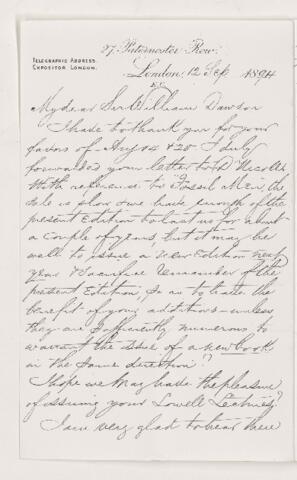 27, Paternoster Row,
TELEGRAPHIC ADDRESS.
EXPOSITOR LONDON.
London, 12 Sep 1894
E.C.
My dear Sir William Dawson
I have to thank you for your
favors of Aug 14 & 20. I duly
forwarded your letter to Dr Nicoll
With reference to "Fossil Men", the
sale is slow & we have enough of the
present Edition to last us for about
a couple of years, but it may be
well to issue a New Edition next
year & sacrifice remainder of the
present Edition, so as to have the
benefit of your additions - unless
they are sufficiently numerous to
warrant the issue of a new book
in the same direction?
I hope we may have the pleasure
of issuing your Lowell Lectures?
I am very glad to hear there